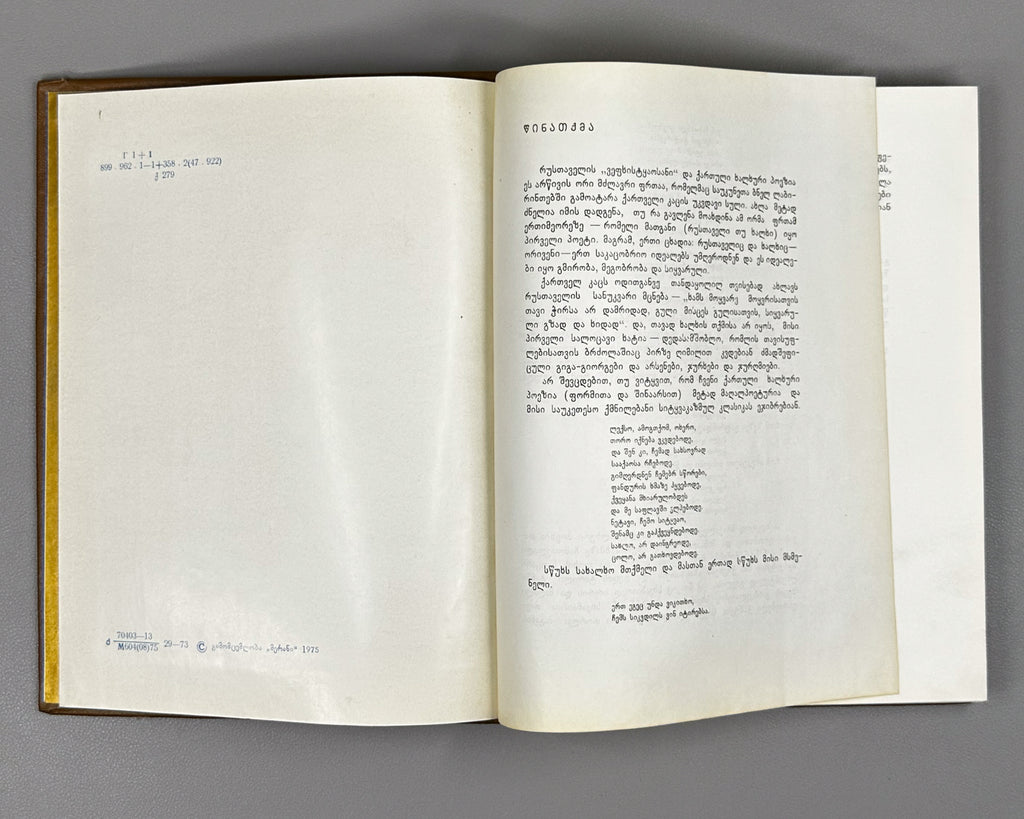 Г 1+1
899 . 962 . 1—1+358 . 2(47 . 922)
ქ 279
ქ 70403—13
М604(08)75 29—73 © გამომცემლობა „მერანი“ 1975
წინათქმა
რუსთაველის „ვეფხისტყაოსანი“ და ქართული ხალხური პოეზია
ეს არწივის ორი მძლავრი ფრთაა, რომელმაც საუკუნეთა ბნელ ლაბი-
რინთებში გამოატარა ქართველი კაცის უკვდავი სული. ახლა მეტად
ძნელია იმის დადგენა, თუ რა გავლენა მოახდინა ამ ორმა ფრთამ
ერთიმეორეზე — რომელი მათგანი (რუსთაველი თუ ხალხი) იყო
პირველი პოეტი. მაგრამ, ერთი ცხადია: რუსთაველიც და ხალხიც—
ორივენი—ერთ საკაცობრიო იდეალებს უმღეროდნენ და ეს იდეალე-
ბი იყო გმირობა, მეგობრობა და სიყვარული.
ქართველ კაცს ოდითგანვე თანდაყოლილ თვისებად ახლავს
რუსთაველის სანუკვარი მცნება — „ხამს მოყვარე მოყვრისათვის
თავი ჭირსა არ დამრიდად, გული მისცეს გულისათვის, სიყვარუ-
ლი გზად და ხიდად“. და, თავად ხალხის თქმისა არ იყოს, მისი
პირველი სალოცავი ხატია — დედასამშობლო, რომლის თავისუფ-
ლებისათვის ბრძოლაშიაც პირზე ღიმილით კვდებიან ძმადშეფი-
ცული გიგა-გიორგები და არსენები, ჯურხები და ჯურღმიები.
არ შევცდებით, თუ ვიტყვით, რომ ჩვენი ქართული ხალხური
პოეზია (ფორმითა და შინაარსით) მეტად მაღალპოეტურია და
მისი საუკეთესო ქმნილებანი სიტყვაკაზმულ კლასიკას ეჯიბრებიან.
ლექსო, ამოგთქომ, ოხერო,
თორო იქნება ვკვდებოდე,
და შენ კი, ჩემად სახსოვრად
სააქაოსა რჩებოდე.
გიმღერდნენ ჩემებრ სწორები,
ფანდურის ხმაზე ჰყვებოდე,
ქვეყანა მხიარულობდეს
და მე საფლავში ვლპებოდე.
ნეტავი, ჩემო სიტყვაო,
შენამც კი გაჰქვეყნდებოდე.
სახლო, არ დაინგრეოდე,
ცოლო, არ გათხოვდებოდე.
სწუხს სახალხო მთქმელი და მასთან ერთად სწუხს მისი მსმე-
ნელი.
ერთ ეგეც უნდა ვიკითხო,
ჩემს სიკვდილს ვინ იტირებსა.